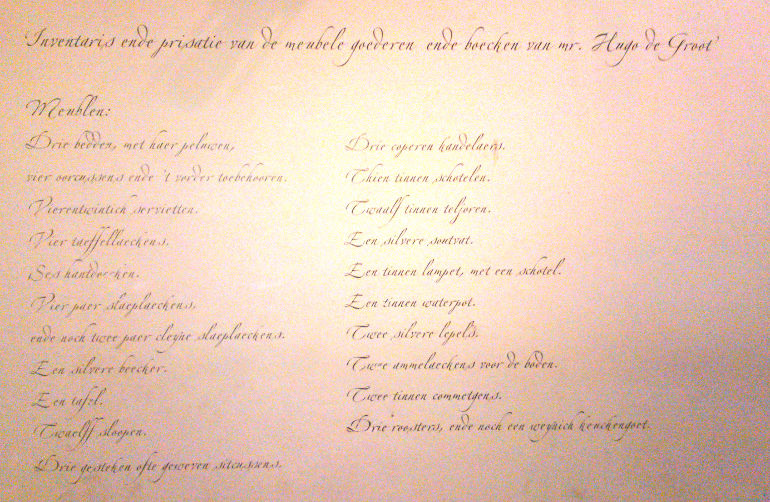 Inventaris ende prisatie van de meubele goederen ende boecken van mr. Hugo de Groot
Meublen:
Drie bedden, met haer peluwen,
vier oorcussens ende 't vorder toebehooren.
Vierentwintich servietten.
Vier taeffellaeckens.
Ses hantdoecken.
Vier paer slaeplaeckens,
ende noch twee paer cleyne slaeplaeckens.
Een silvere beecker.
Een tafel.
Twaelff sloopen.
Drie gesteken ofte geweven sitcussens.
Drie coperen kandelaers.
Thien tinnen schotelen.
Twaalf tinnen teljoren.
Een silvere soutvat.
Een tinnen lampet, met een schotel.
Een tinnen waterpot.
Twee silvere lepels.
Twee ammelaeckens voor de boden.
Twee tinnen commetgens.
Drie roosters, ende noch een weynich keuckengoet.